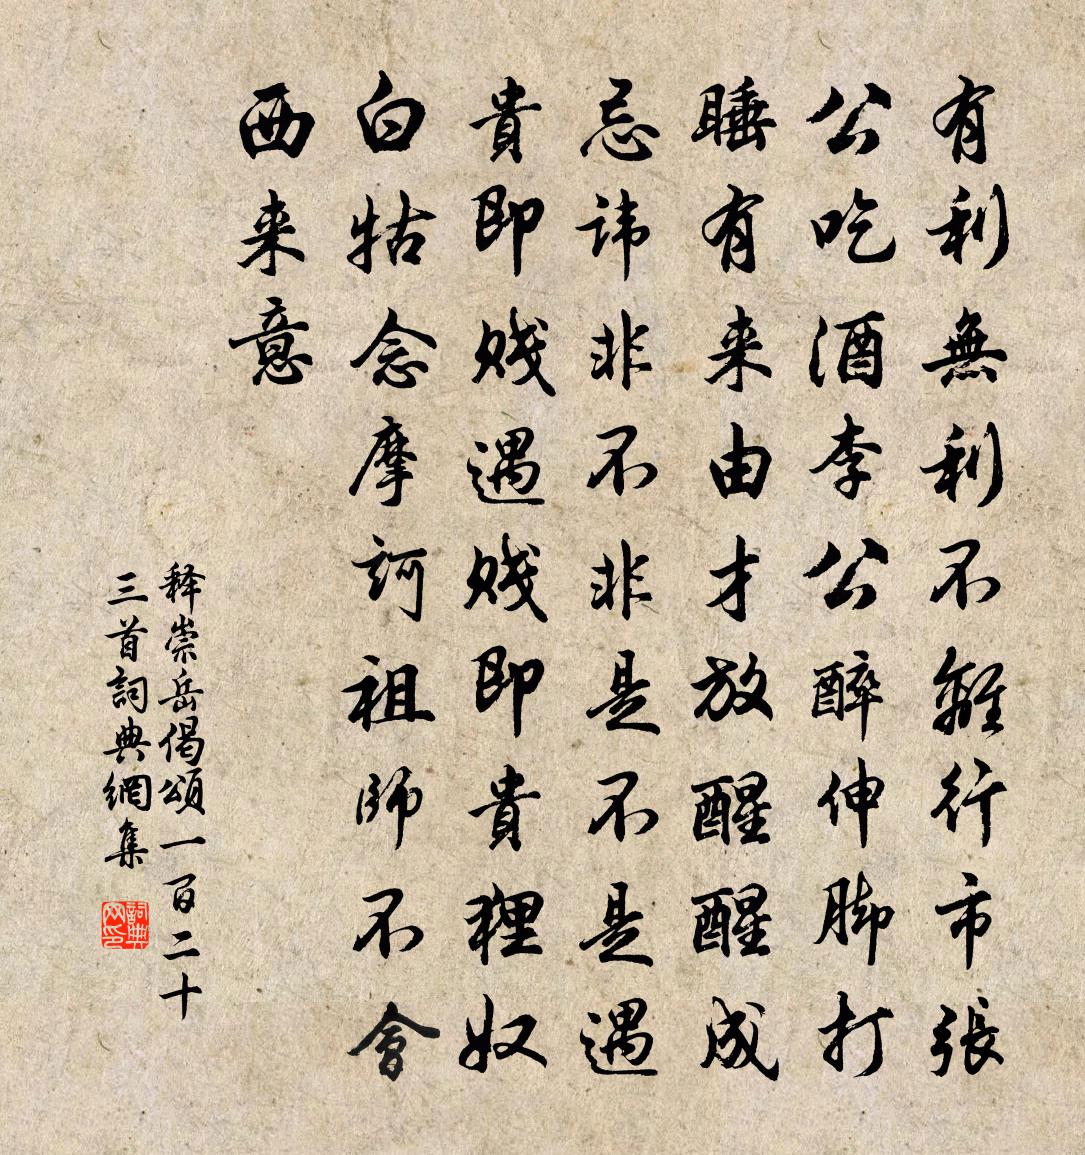 有利無利不離行市張
公吃酒李公醉伸脚打
睡有来由才放醒醒成
忌讳非不非是不是遇
貴即贱遇贱即貴狸奴
白牯念摩訶祖師不會
西来意
释崇岳偈頌一百二十
三首詞典網集
詞典网印